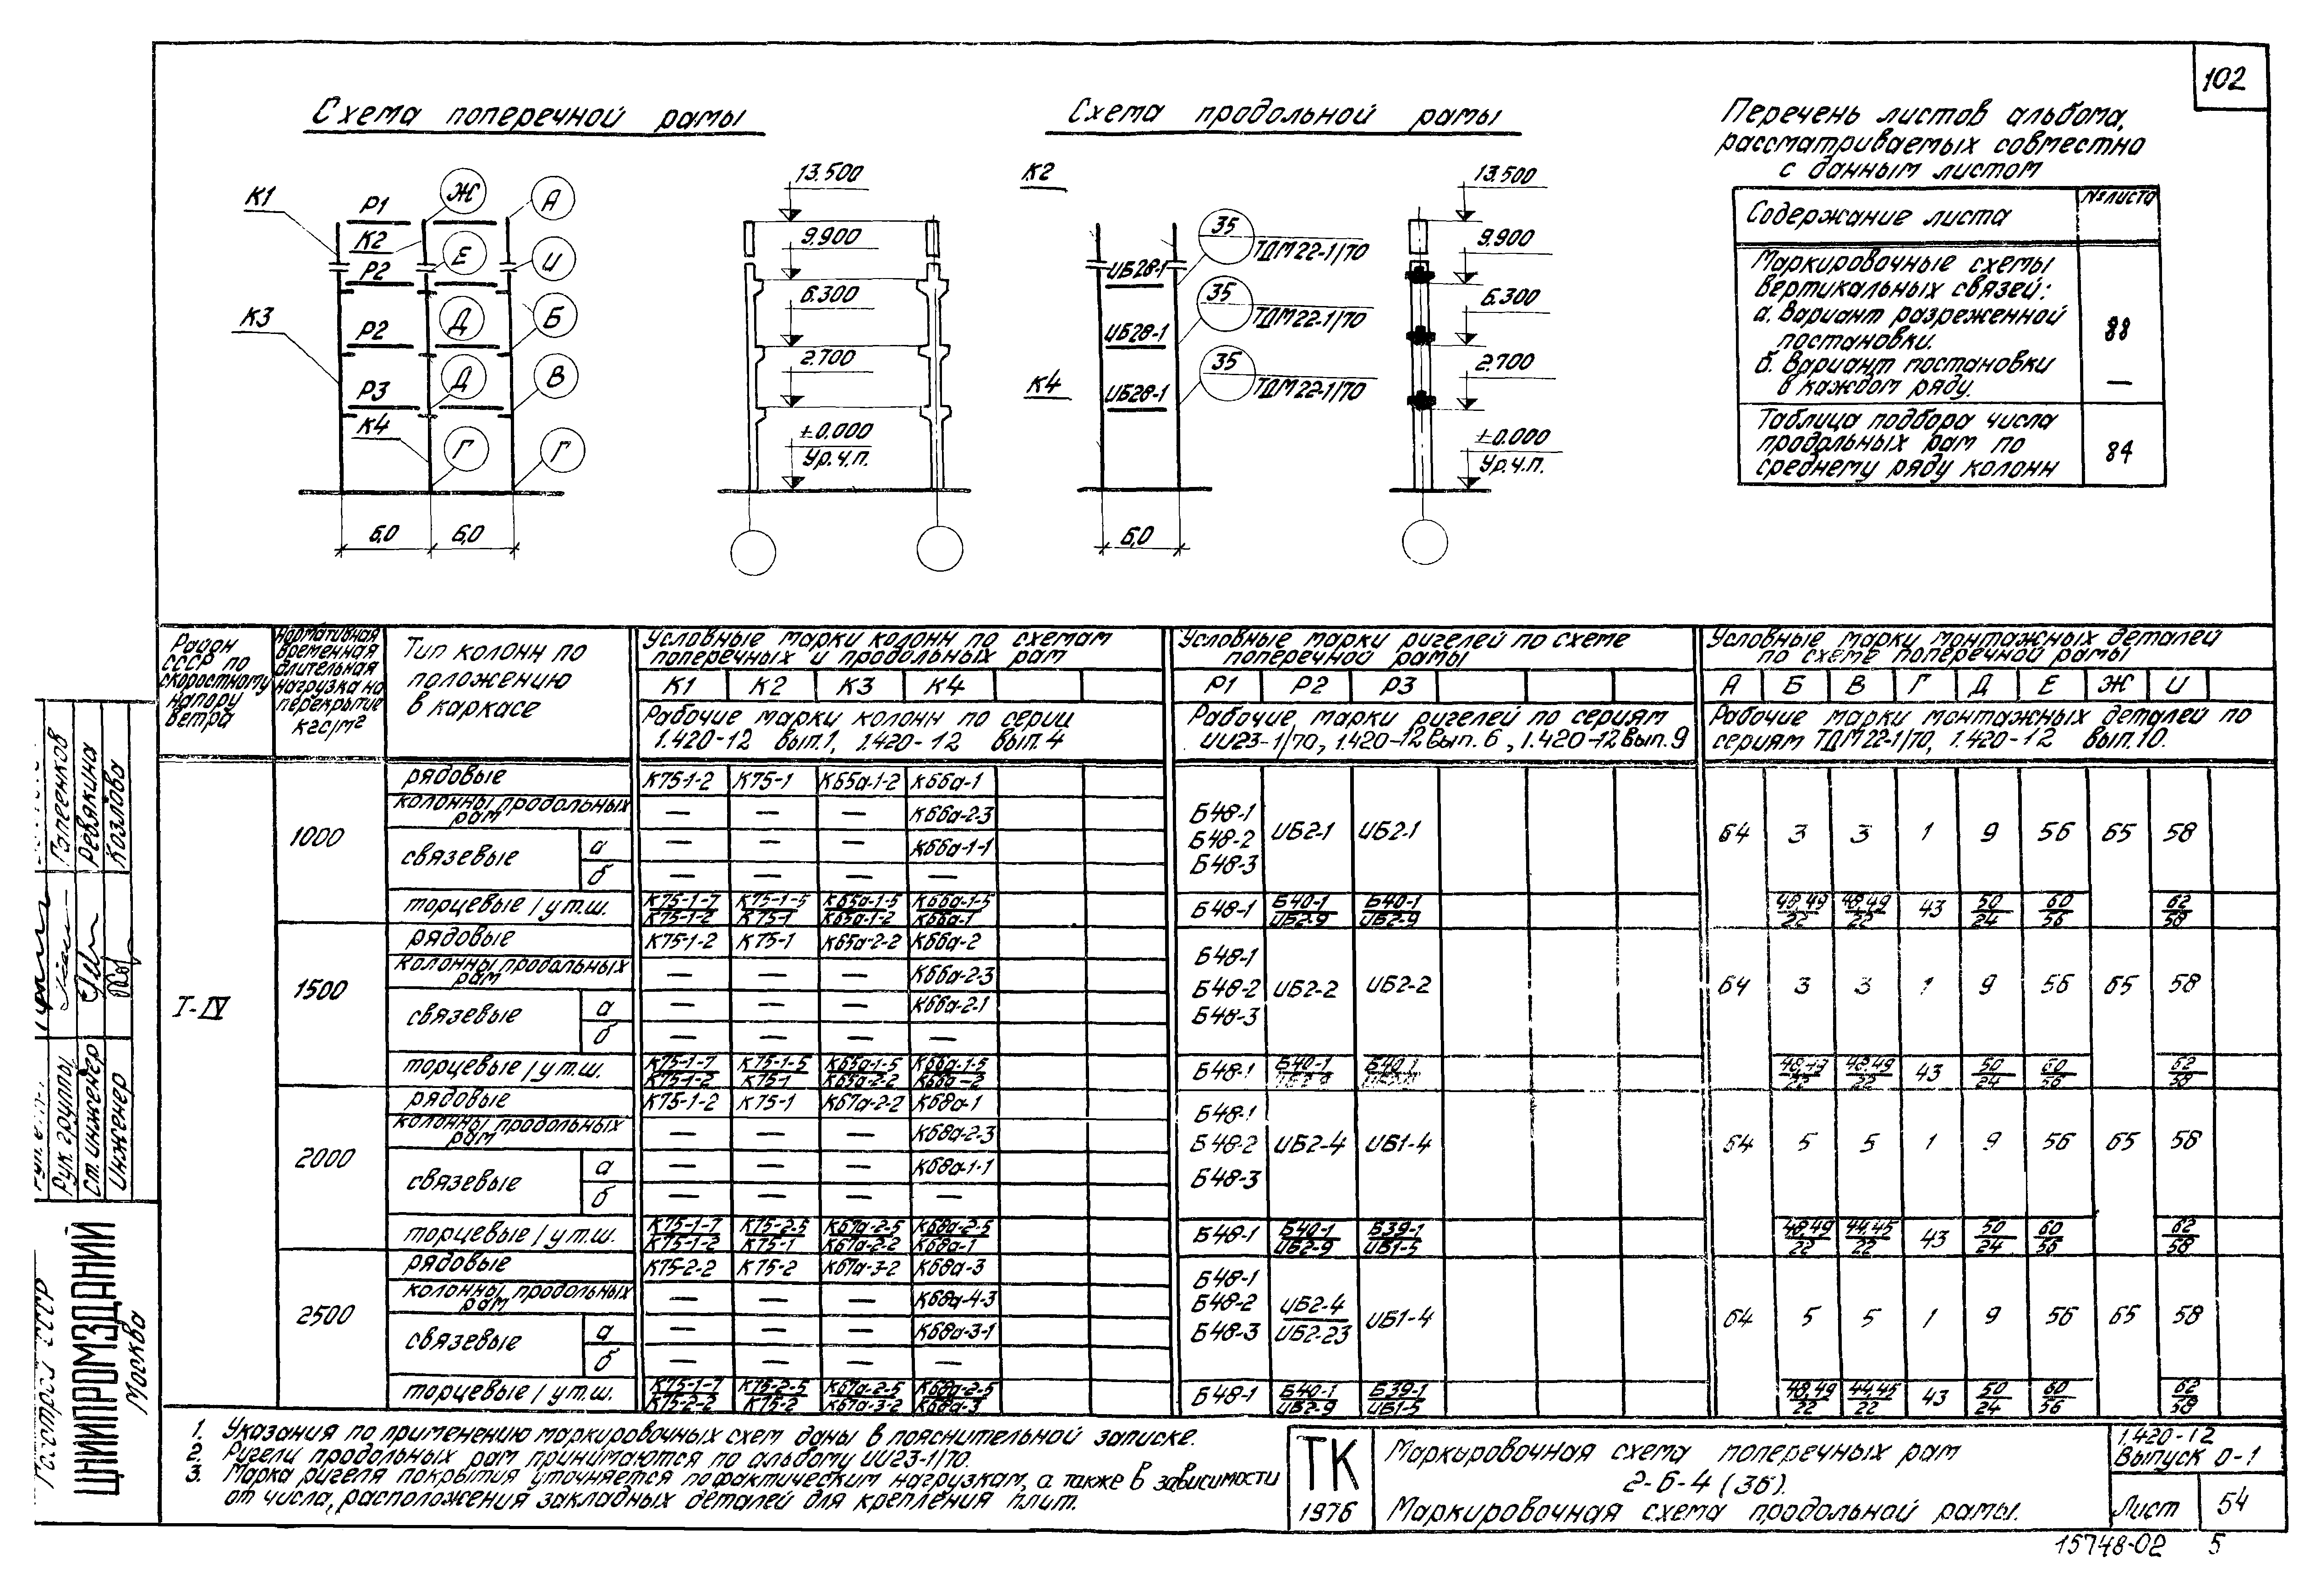 102
Схема поперечной рамы
К1
Р1
К2
Ж
А
Р2
Е
И
К3
Р2
Д
Б
Р3
Д
В
К4
Г
Г
6,0 6,0
13.500
9.900
6.300
2.700
±0.000
Ур.ч.п.
Схема продольной рамы
К2
35
ТДМ22-1/70
ИБ28-1
35
ТДМ22-1/70
ИБ28-1
К4
35
ТДМ22-1/70
ИБ28-1
6,0
13.500
9.900
6.300
2.700
±0.000
Ур.ч.п.
Перечень листов альбома,
рассматриваемых совместно
с данным листом
Содержание листа №листа
Маркировочные схемы
вертикальных связей:
а. Вариант разреженной
постановки. 88
б. Вариант постановки
в каждом ряду. —
Таблица подбора числа
продольных рам по
среднему ряду колонн 84
Район
СССР по
скоростному
напору
ветра
Нормативная
временная
длительная
нагрузка на
перекрытие
кгс/м²
Тип колонн по
положению
в каркасе
Условные марки колонн по схемам
поперечных и продольных рам
К1 К2 К3 К4
Рабочие марки колонн по серии
1.420-12 вып.1, 1.420-12 вып.4
Условные марки ригелей по схеме
поперечной рамы
Р1 Р2 Р3
Рабочие марки ригелей по сериям
ИИ23-1/70, 1.420-12 вып.6, 1.420-12 вып.9
Условные марки монтажных деталей
по схеме поперечной рамы
А Б В Г Д Е Ж И
Рабочие марки монтажных деталей по
сериям ТДМ22-1/70, 1.420-12 вып.10.
I-IV
1000
рядовые К75-1-2 К75-1 К65а-1-2 К66а-1
колонны продольных рам — — — К66а-2-3
связевые а — — — К66а-1-1
б — — — —
Б48-1
Б48-2 ИБ2-1 ИБ2-1
Б48-3
64 3 3 1 9 56 65 58
торцевые / у т.ш. К75-1-7/К75-1-2 К75-1-5/К75-1 К65а-1-5/К65а-1-2 К66а-1-5/К66а-1 Б48-1 Б40-1/ИБ2-9 Б40-1/ИБ2-9 48,49/22 48,49/22 43 50/24 60/56 62/58
1500
рядовые К75-1-2 К75-1 К65а-2-2 К66а-2
колонны продольных рам — — — К66а-2-3
связевые а — — — К66а-2-1
б — — — —
Б48-1
Б48-2 ИБ2-2 ИБ2-2
Б48-3
64 3 3 1 9 56 65 58
торцевые / у т.ш. К75-1-7/К75-1-2 К75-1-5/К75-1 К65а-1-5/К65а-2-2 К66а-1-5/К66а-2 Б48-1 Б40-1 Б40-1 48,49/22 48,49/22 43 50/24 60/56 62/58
2000
рядовые К75-1-2 К75-1 К67а-2-2 К68а-1
колонны продольных рам — — — К68а-2-3
связевые а — — — К68а-1-1
б — — — —
Б48-1
Б48-2 ИБ2-4 ИБ1-4
Б48-3
64 5 5 1 9 56 65 58
торцевые / у т.ш. К75-1-7/К75-1-2 К75-2-5/К75-1 К67а-2-5/К67а-2-2 К68а-2-5/К68а-1 Б48-1 Б40-1/ИБ2-9 Б39-1/ИБ1-5 48,49/22 44,45/22 43 50/24 60/56 62/58
2500
рядовые К75-2-2 К75-2 К67а-3-2 К68а-3
колонны продольных рам — — — К68а-4-3
связевые а — — — К68а-3-1
б — — — —
Б48-1
Б48-2 ИБ2-4/ИБ2-23 ИБ1-4
Б48-3
64 5 5 1 9 56 65 58
торцевые / у т.ш. К75-1-7/К75-2-2 К75-2-5/К75-2 К67а-2-5/К67а-3-2 К68а-2-5/К68а-3 Б48-1 Б40-1/ИБ2-9 Б39-1/ИБ1-5 48,49/22 44,45/22 43 50/24 60/56 62/58
1. Указания по применению маркировочных схем даны в пояснительной записке.
2. Ригели продольных рам принимаются по альбому ИИ23-1/70.
3. Марка ригеля покрытия уточняется по фактическим нагрузкам, а также в зависимости
от числа, расположения закладных деталей для крепления плит.
ТК
1976
Маркировочная схема поперечных рам
2-6-4 (36).
Маркировочная схема продольной рамы.
1.420-12
Выпуск 0-1
Лист 54
15748-02 5
Рук. группы
Ст. инженер Ревякина
Инженер Козлова
Госстрой СССР
ЦНИИПРОМЗДАНИЙ
Москва